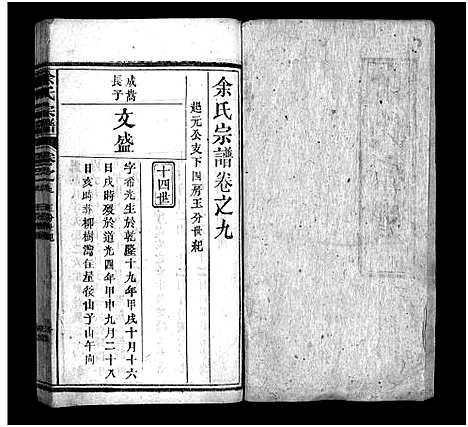 余氏宗譜卷之九
起元公支下四房王分世紀
十四世
成嵩
長子
文盛
字希先生於乾隆十九年甲戌十月十六
日戌時歿於道光四年甲申九月二十八
日亥時葬柳樹灣住屋後山子山午向
余氏宗譜